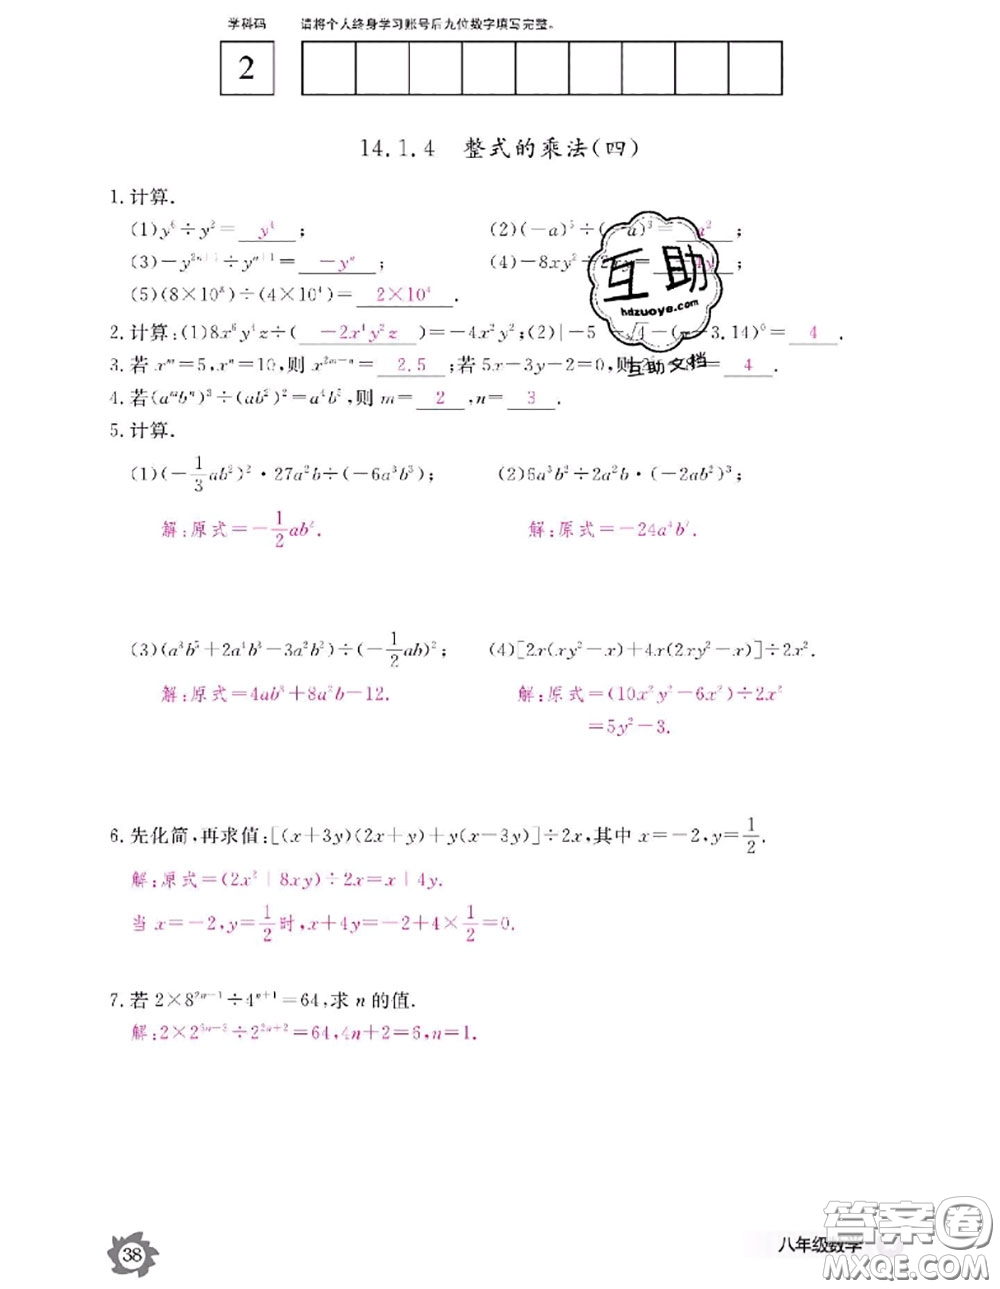 学科码 请将个人终身学习账号后九位数字填写完整。
2
14.1.4 整式的乘法(四)
1.计算.
(1)y⁶÷y²= y⁴ ; (2)(-a)⁵÷(-a)³= a² ;
(3)-y²ⁿ⁺¹÷yⁿ⁺¹= -yⁿ ; (4)-8xy²÷2xy= 4y ;
(5)(8×10⁸)÷(4×10⁴)= 2×10⁴ .
2.计算:(1)8x⁶y⁴z÷( -2x⁴y²z )=-4x²y²;(2)|-5 -√4-(π-3.14)⁰= 4
3.若 xᵐ=5,xⁿ=10,则 x²ᵐ⁻ⁿ= 2.5 ;若 5x-3y-2=0,则 = 4 .
4.若(aᵐbⁿ)³÷(ab²)²=a⁴b⁵,则 m= 2 ,n= 3 .
5.计算.
(1)(-1/3ab²)²·27a²b÷(-6a³b³); (2)6a³b²÷2a²b·(-2ab²)³;
解:原式=-1/2ab². 解:原式=-24a⁴b⁷.
(3)(a³b⁵+2a⁴b³-3a²b²)÷(-1/2ab)²; (4)[2x(xy²-x)+4x(2xy²-x)]÷2x².
解:原式=4ab³+8a²b-12. 解:原式=(10x²y²-6x²)÷2x²
=5y²-3.
6.先化简,再求值:[(x+3y)(2x+y)+y(x-3y)]÷2x,其中 x=-2,y=1/2.
解:原式=(2x²+8xy)÷2x=x+4y.
当 x=-2,y=1/2时,x+4y=-2+4×1/2=0.
7.若 2×8²ⁿ⁻¹÷4ⁿ⁺¹=64,求 n 的值.
解:2×2⁶ⁿ⁻³÷2²ⁿ⁺²=64,4n+2=6,n=1.
互助
hdzuoye.com
互助文档
38
八年级数学
答案卷
MXQE.COM